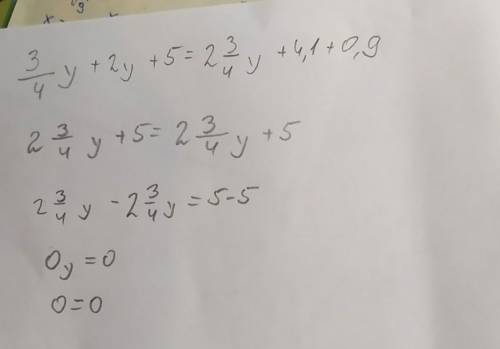 3/4 y + 2y + 5 = 2 3/4 y + 4,1 + 0,9
2 3/4 y + 5 = 2 3/4 y + 5
2 3/4 y - 2 3/4 y = 5-5
0y = 0
0 = 0